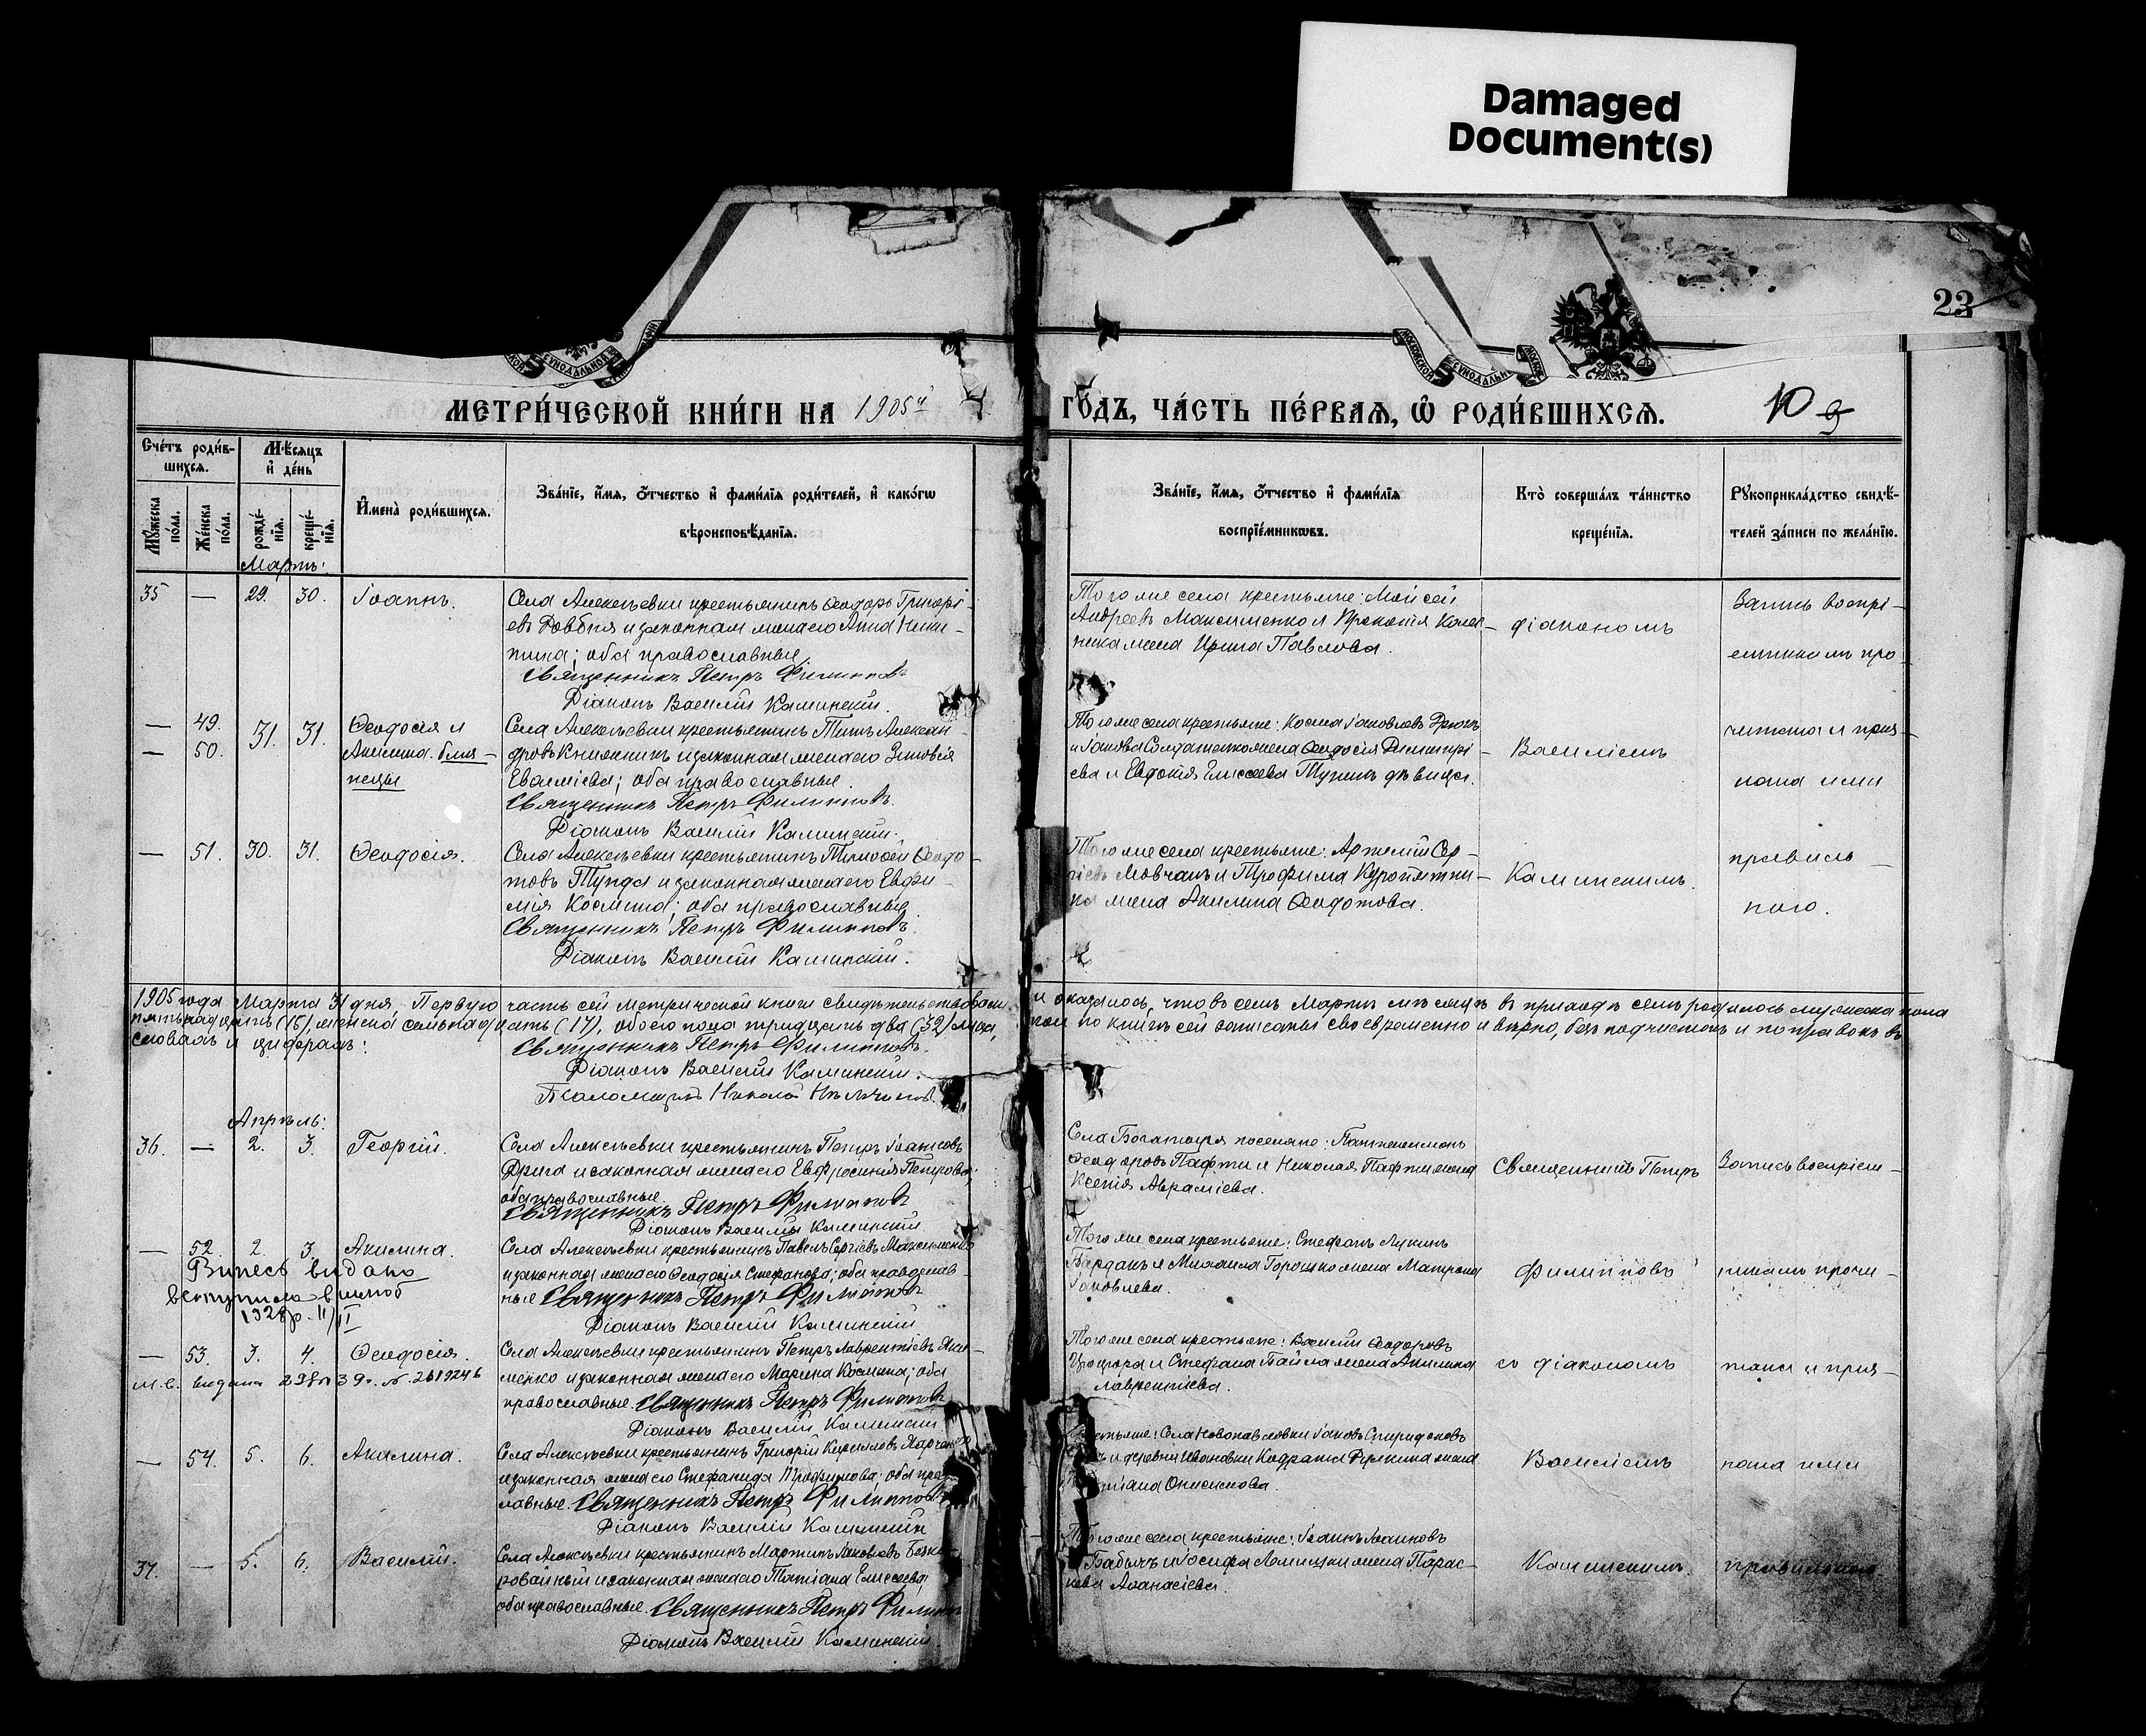 Damaged
Document(s)
23
МЕТРИ́ЧЕСКОЙ КНИ́ГИ НА 1905й ГО́ДЪ, ЧА́СТЬ ПЕ́РВАѦ, Ѽ РОДИ́ВШИХСѦ.
Сче́тъ роди́в-
шихсѧ.
Мꙋ́жеска
по́ла.
Же́нска
по́ла.
Мѣ́сѧцъ
и҆ де́нь
рожде́-
нїѧ.
креще́-
нїѧ.
И҆мена̀ роди́вшихсѧ.
Зва́нїе, и҆́мѧ, ѻ҆́тчество и҆ фами́лїѧ роди́телей, и҆ како́гѡ
вѣроисповѣ́данїѧ.
Зва́нїе, и҆́мѧ, ѻ҆́тчество и҆ фами́лїѧ
воспрїе́мникѡвъ.
Кто̀ соверша́лъ та́инство
креще́нїѧ.
Рꙋкоприкла́дство свидѣ́-
телей за́писи по жела́нїю.
Мартъ:
35 — 29. 30. Іоаннъ.
Села Алексѣевки крестьянинъ Ѳеодоръ Григорі-
евъ Довбня и законная жена его Анна Ники-
тина; оба православные.
Священникъ Петръ Филипповъ
Діаконъ Василій Каминскій.
Того же села крестьяне: Моисей
Андреевъ Максименко и Прокопія
жена Ирина Павлова.
діакономъ
Запись воспрі-
емникамъ про-
— 49.
— 50. 31. 31. Ѳеодосія и
Акилина близ-
нецы
Села Алексѣевки крестьянинъ Титъ Алексан-
дровъ Княжникъ и законная жена его Зиновія
; оба православные.
Священникъ Петръ Филипповъ.
Діаконъ Василій Каминскій.
Того же села крестьяне: Косма Іаковлевъ
и Іакова Солдатенко жена Ѳеодосія Димитрі-
ева и Евдокія Елисеева дѣвица.
Василіемъ
читана и приз-
нана ими
— 51. 30. 31. Ѳеодосія.
Села Алексѣевки крестьянинъ Тимоѳей Ѳеодо-
товъ Тупча и законная жена его Евфи-
мія Космина; оба православные.
Священникъ Петръ Филипповъ.
Діаконъ Василій Каминскій.
Того же села крестьяне: Артемій Сер-
гіевъ Мовчанъ и Трофима Куропятни-
ка жена Акилина Ѳеодотова.
Каминскимъ.
правиль-
ною.
1905 года Марта 31 дня, Первую часть сей метрической книги свидѣтельствовали, и оказалось, что въ семъ Мартѣ мѣсяцѣ въ приходѣ семъ родилось мужеска пола
пятнадцать (15), женска семьнадцать (17), обоего пола тридцать два (32) лица, кои по книгѣ сей записаны своевременно и вѣрно, безъ подчистокъ и поправокъ въ
словахъ и цифрахъ:
Священникъ Петръ Филипповъ.
Діаконъ Василій Каминскій.
Псаломщикъ Николай
Апрѣль:
36. — 2. 3. Георгій.
Села Алексѣевки крестьянинъ Петръ Іоанновъ
Дрига и законная жена его Евфросинія Петрова;
оба православные.
Священникъ Петръ Филипповъ
Діаконъ Василій Каминскій
Села Богатыря поселяне: Пантелеимонъ
Ѳеодоровъ Пафти и Николая Пафти жена
Ксенія Авраміева.
Священникъ Петръ
Запись воспріем-
— 52. 2. 3. Акилина.
Села Алексѣевки крестьянинъ Павелъ Сергіевъ Максименко
и законная жена его Ѳеодосія Стефанова; оба православ-
ные Священникъ Петръ Филипповъ
Діаконъ Василій Каминскій
Того же села крестьяне: Стефанъ Лукинъ
Барданъ и Михаила Горошко жена Матрона
Іаковлева.
Филипповъ
никамъ прочи-
видано
вступила в шлюб
1928 р. 11/II
— 53. 3. 4. Ѳеодосія.
Села Алексѣевки крестьянинъ Петръ Лаврентіевъ
менко и законная жена его Марина Космина; оба
православные. Священникъ Петръ Филипповъ
Діаконъ Василій Каминскій
Того же села крестьяне: Василій Ѳеодоровъ
и Стефана Байла жена Акилина
Лаврентіева.
съ діакономъ
тана и приз-
— 54. 5. 6. Акилина.
Села Алексѣевки крестьянинъ Григорій Кирилловъ
и законная жена его Стефанида Трофимова; оба право-
славные. Священникъ Петръ Филипповъ
Діаконъ Василій Каминскій
Села Новопавловки Іаковъ Спиридоновъ
и деревни Ивановки Кодрата жена
Онисимова.
Василіемъ
нана ими
37. — 5. 6. Василій.
Села Алексѣевки крестьянинъ Мартинъ Іаковлевъ
и законная жена его Татіана Елисеева;
оба православные. Священникъ Петръ Филипповъ
Діаконъ Василій Каминскій
Того же села крестьяне: Іоаннъ Іоанновъ
Бабичъ и Іосифа жена Парас-
кева Аѳанасіева.
Каминскимъ.
правильною.